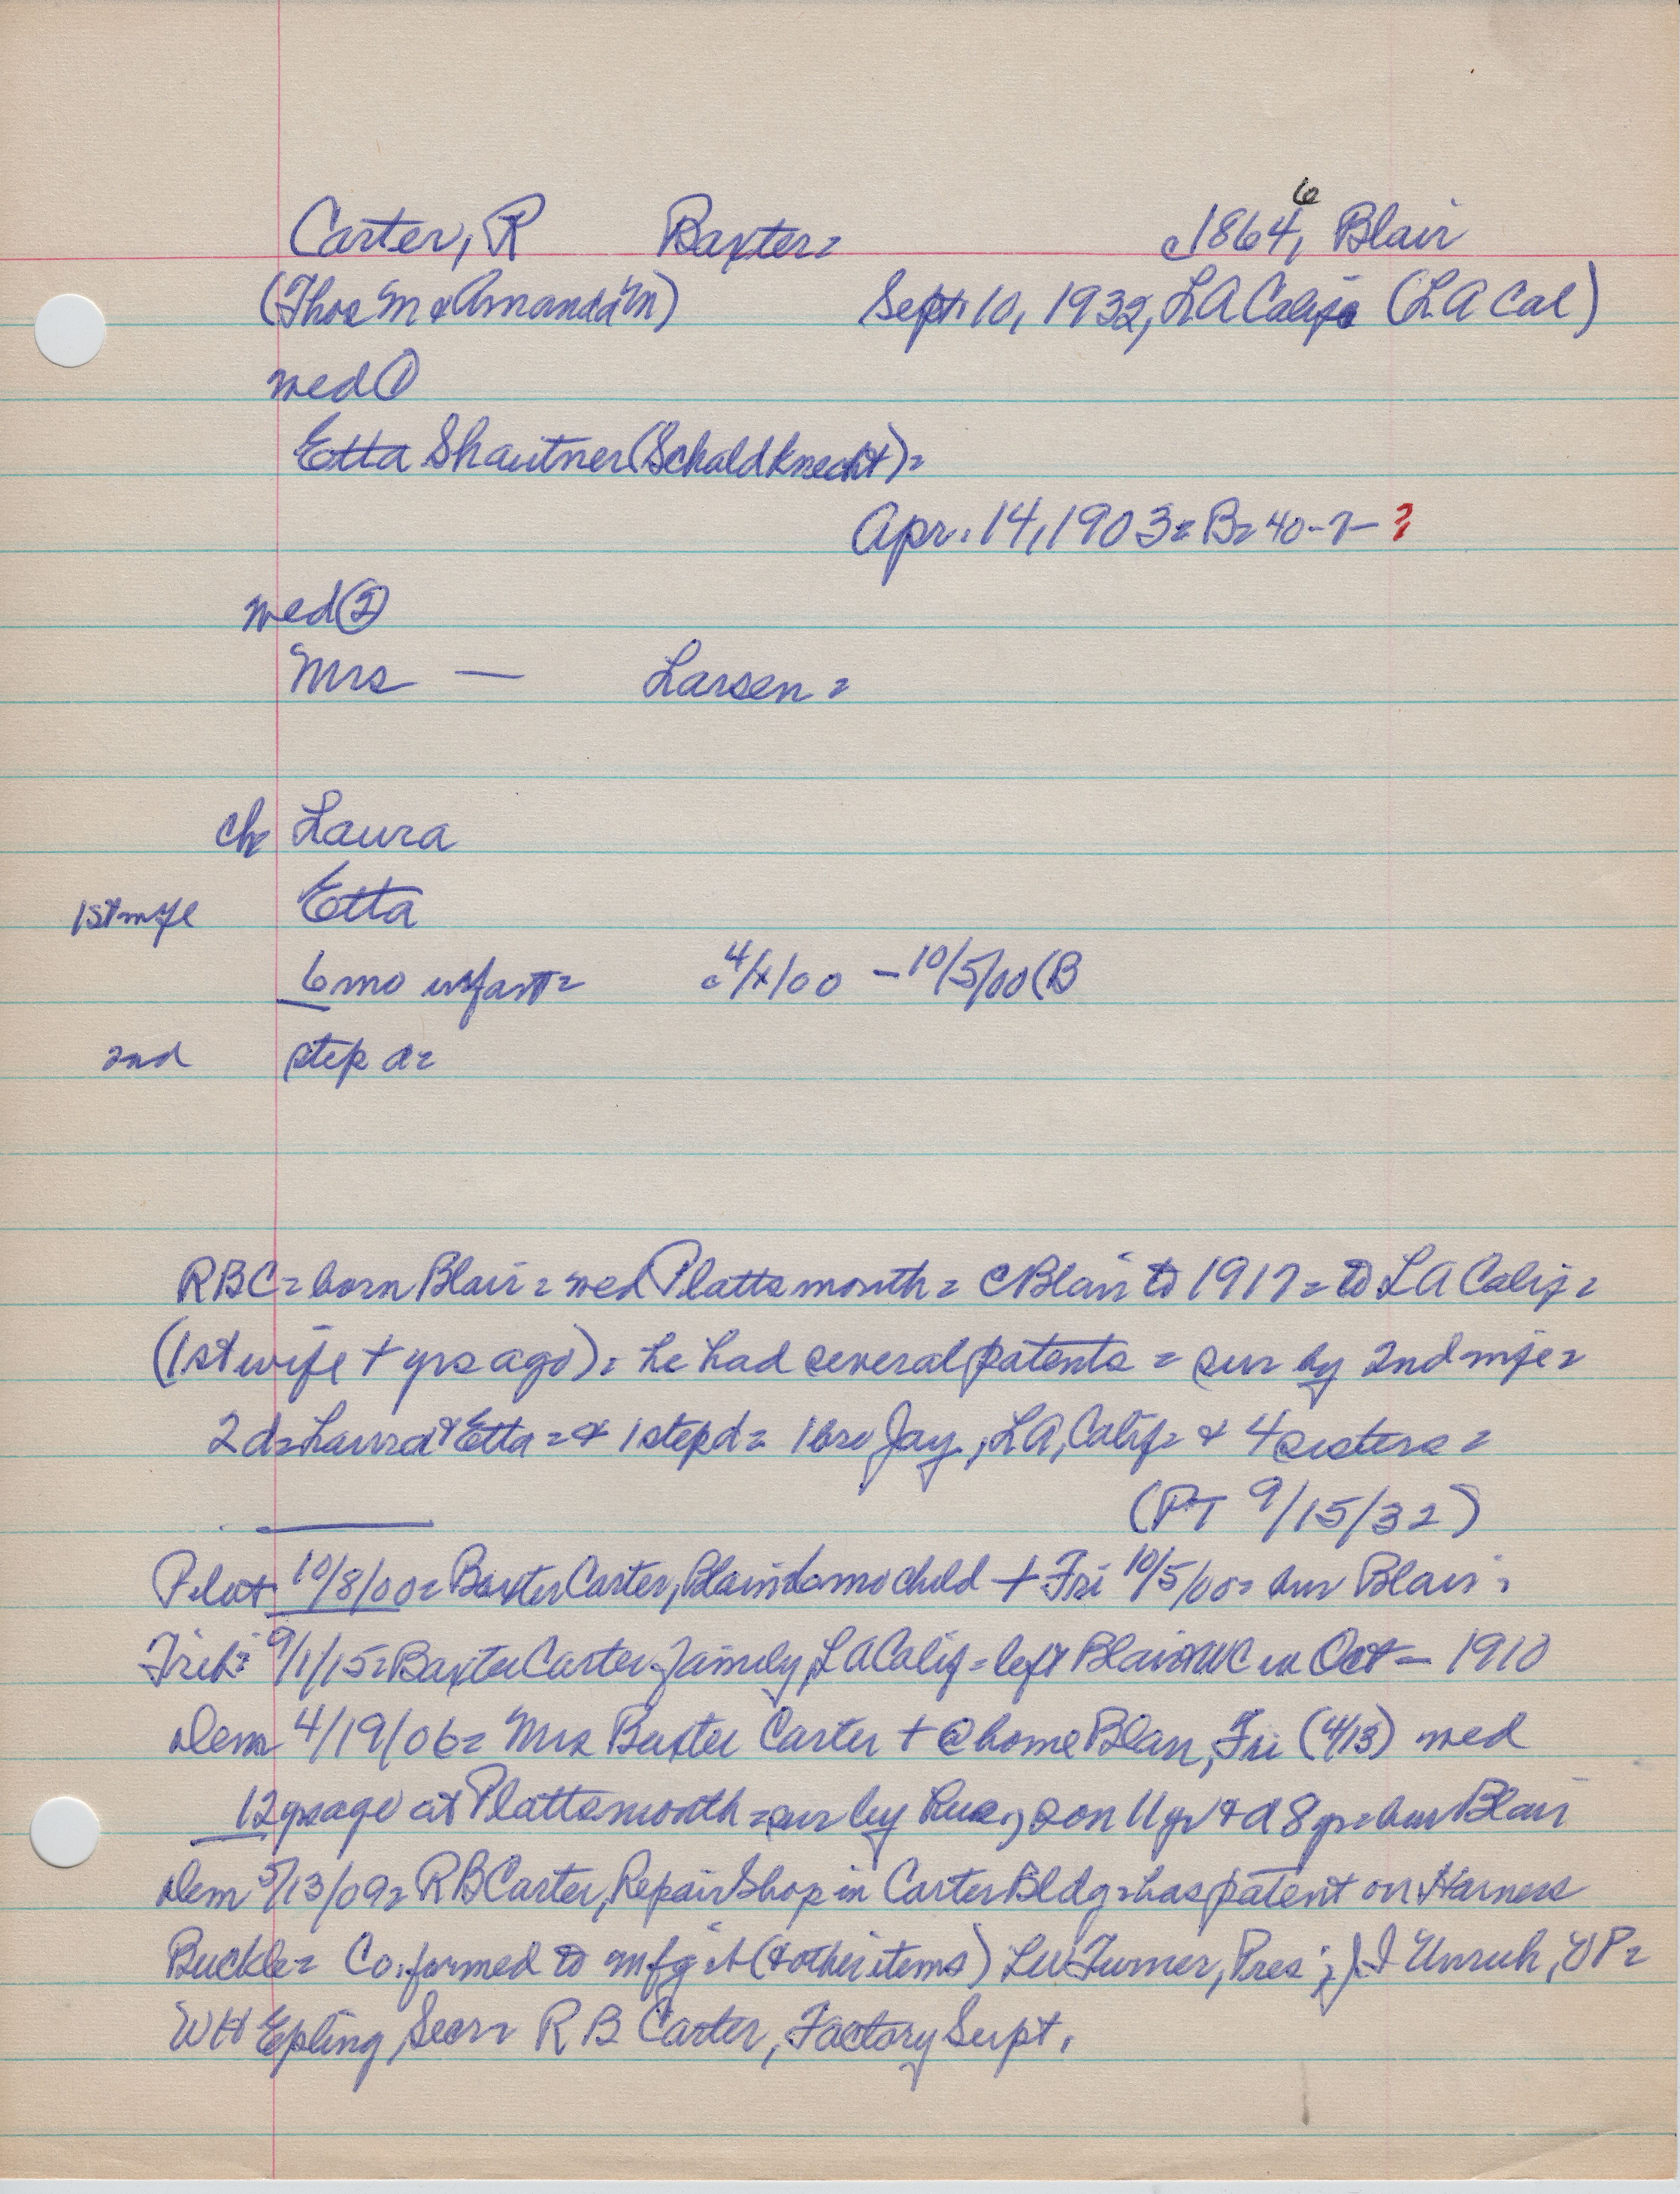 Carter, R Baxter= c1864, 6 Blair
(Thos M & Amanda M) Sept 10, 1932, LA Calif (LA Cal)
wed ①
Etta Shautner (Schaldknecht)=
Apr. 14, 1903= B= 40-7- ?
wed ②
Mrs — Larsen=
ch Laura
1st wife Etta
6 mo infant= c 4/x/00 - 10/5/00 (B
2nd step d=
RBC= born Blair= wed Plattsmouth= c Blair to 1917= to LA Calif=
(1st wife + yrs ago)= he had several patents= sur by 2nd wife=
2d= Laura & Etta= & 1 step d= 1 bro Jay, LA, Calif= & 4 sisters=
(PT 9/15/32)
Pilot 10/8/00= Baxter Carter, Blair 6 mo child + Fri 10/5/00= bur Blair.
Trib: 9/1/15= Baxter Carter family, LA Calif= left Blair WC in Oct - 1910
Dem 4/19/06= Mrs Baxter Carter + @ home Blair, Fri (4/13) wed
12 yrs ago at Plattsmouth= sur by hus, son 11 yr & d 8 yr= bur Blair
Dem 5/13/09= RB Carter, Repair Shop in Carter Bldg= has patent on Harness
Buckle= Co. formed to mfg it (& other items) Turner, Pres; Unruh, VP=
WH Epling, Secr= R B Carter, Factory Supt.